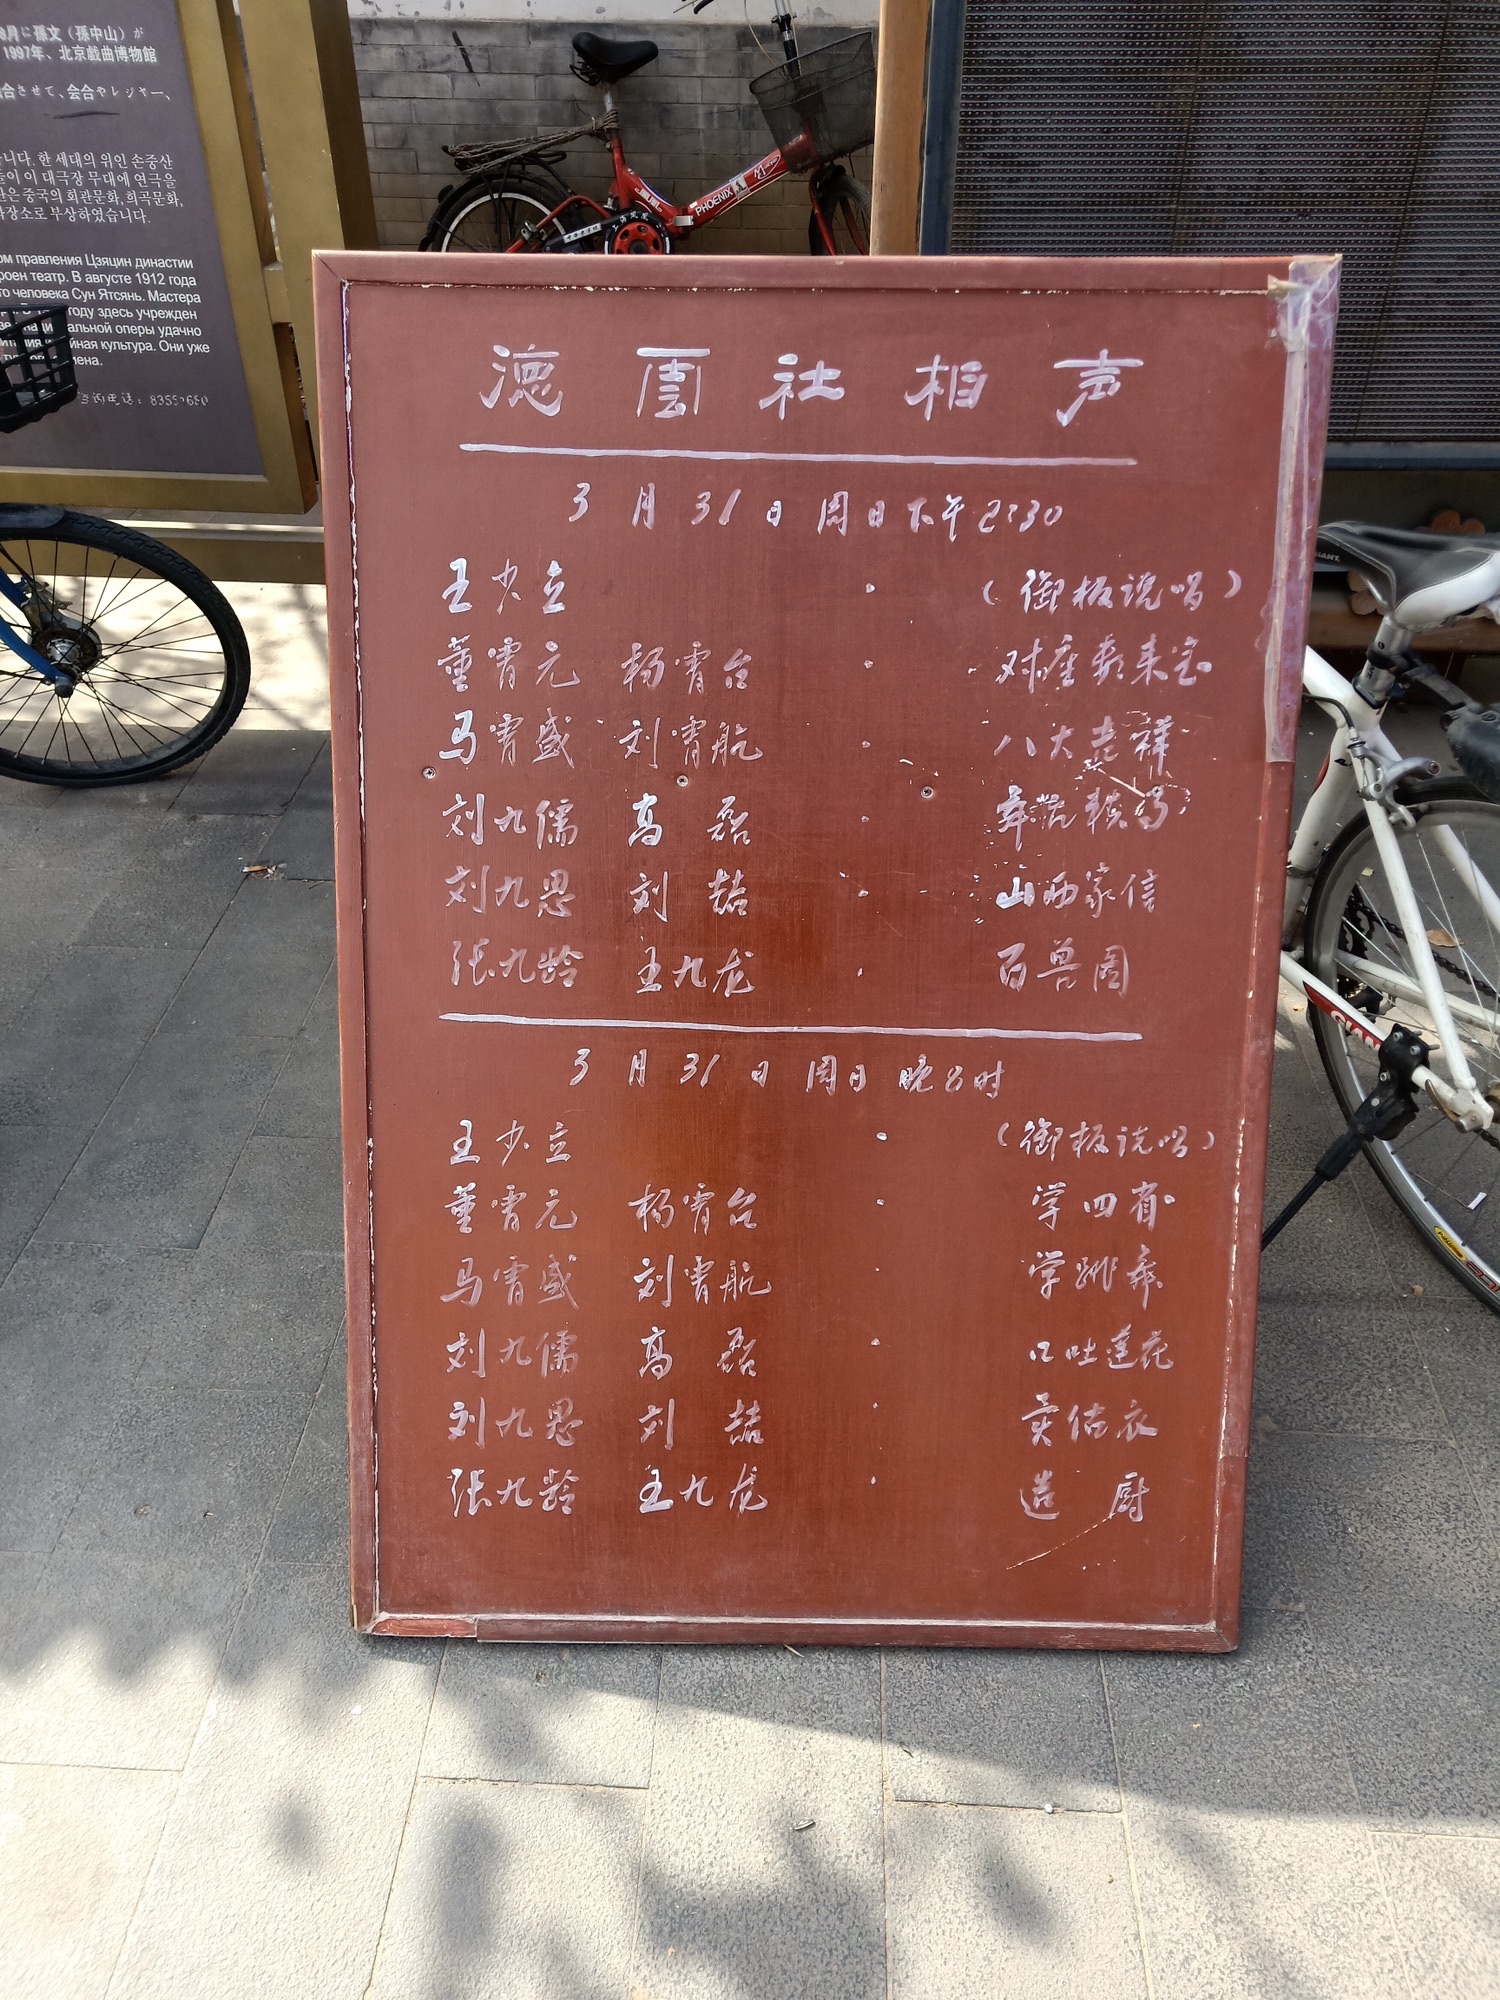 8月に孫文（孫中山）が
1997年、北京戯曲博物館
合させて、会合やレジャー、
니다. 한 세대의 위인 손중산
들이 이 대극장 무대에 연극을
관은 중국의 회관문화, 희곡문화,
장소로 부상하였습니다.
ом правления Цзяцин династии
роен театр. В августе 1912 года
го человека Сун Ятсянь. Мастера
году здесь учрежден
альной оперы удачно
йная культура. Они уже
ена.
电话：83551680
PHOENIX
德雲社相声
3月31日周日下午2:30
王少立 （御板说唱）
董霄元 杨霄台 对座数来宝
马霄盛 刘霄航 八大吉祥
刘九儒 高磊
刘九思 刘喆 山西家信
张九龄 王九龙 百兽图
3月31日周日晚8时
王少立 （御板说唱）
董霄元 杨霄台 学四省
马霄盛 刘霄航 学跳舞
刘九儒 高磊 口吐莲花
刘九思 刘喆 卖估衣
张九龄 王九龙 造厨
GIANT
GIAN